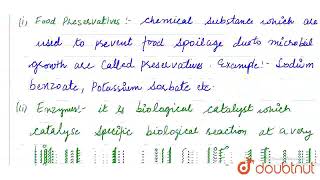 (i) Food Preservatives :- chemical substance which are
used to prevent food spoilage dueto microbial
growth are called preservatives. Example:- Sodium
benzoate, Potassium Sorbate etc.
(ii) Enzymes:- it is biological catalyst which
catalyse specific biological reaction at a very
doubtnut